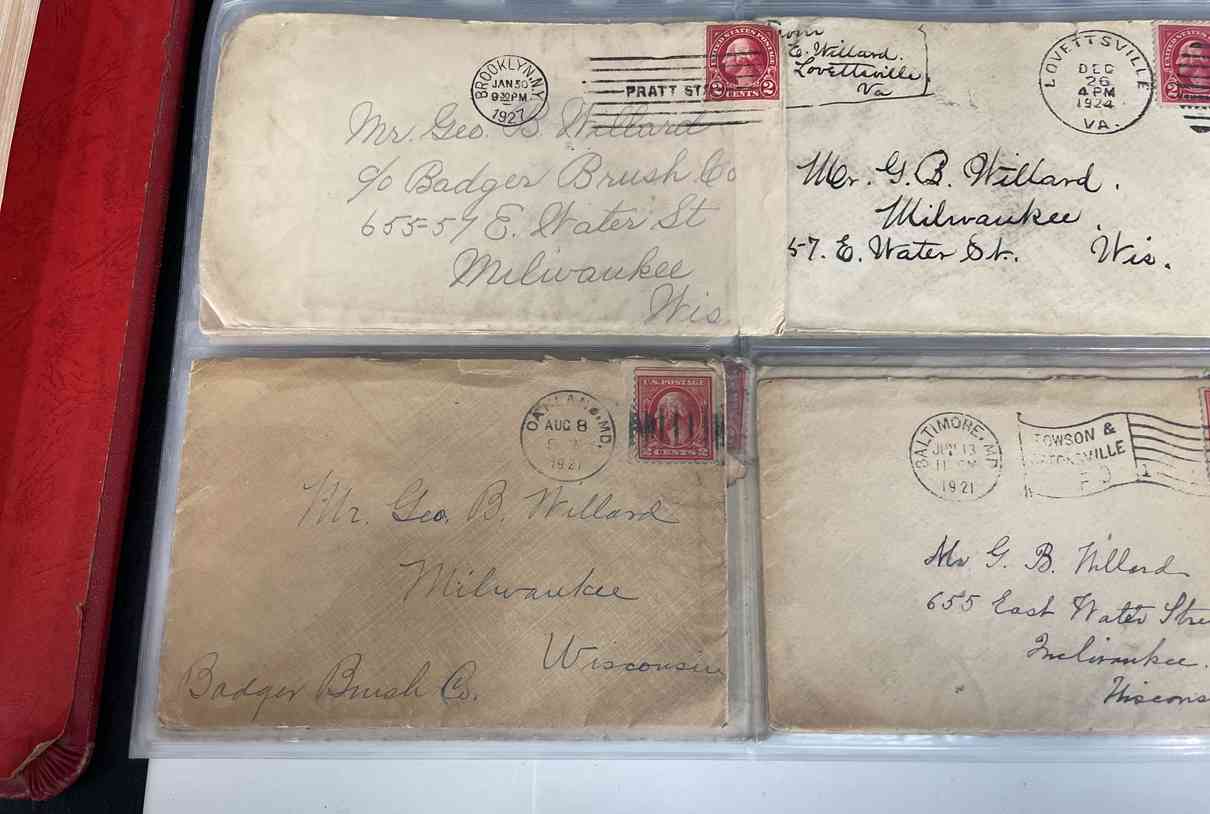 BROOKLYN, N.Y.
JAN 30
9 30 PM
1927
PRATT ST
UNITED STATES POSTAGE
2 CENTS 2
Mr. Geo. B Willard
c/o Badger Brush Co
655-57 E. Water St
Milwaukee
Wis
E. Willard.
Lovettsville,
Va
LOVETTSVILLE
DEC
26
4 PM
1924
VA.
2
Mr. G. B. Willard.
Milwaukee
57. E. Water St. Wis.
OAKLAND, MD.
AUG 8
1921
U.S. POSTAGE
2 CENTS 2
Mr. Geo. B. Willard
Milwaukee
Wisconsin
Badger Brush Co.
BALTIMORE, MD
13
11 PM
1921
TOWSON &
1
Mr G. B. Willard
655 East Water Stre
Milwaukee.
Wiscons